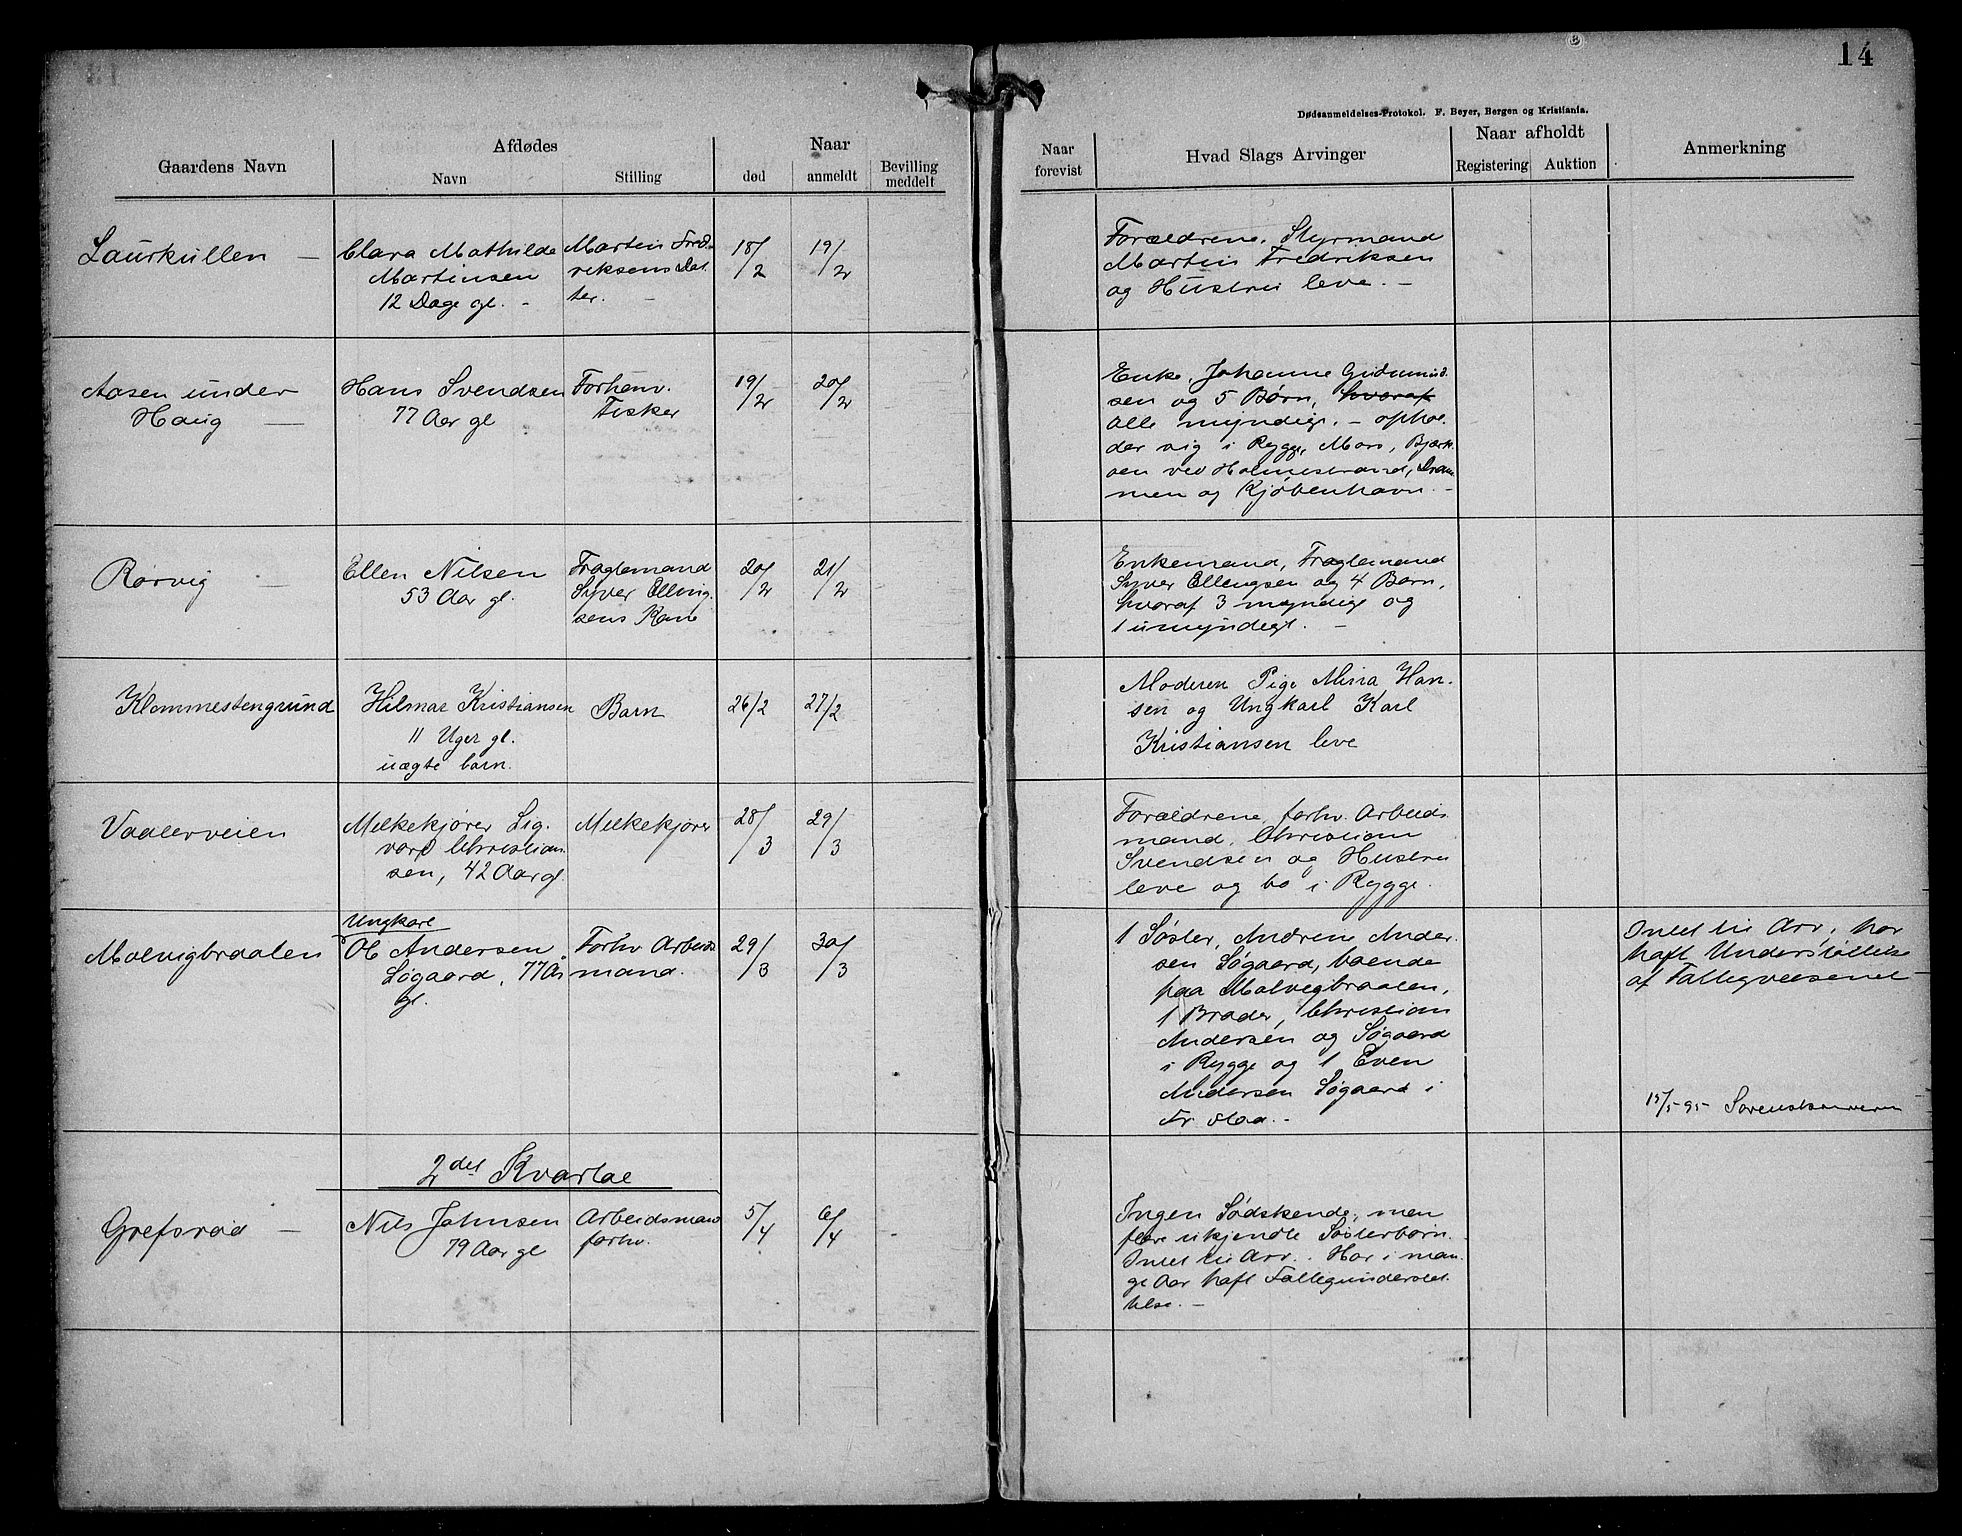 14
Dødsanmeldelses-Protokol. F. Beyer, Bergen og Kristiania.
Gaardens Navn
Afdødes
Navn
Stilling
Naar
død
anmeldt
Bevilling
meddelt
Naar
forevist
Hvad Slags Arvinger
Naar afholdt
Registering
Auktion
Anmerkning
Laurkullen —
Clara Mathilde
Martinsen
12 Dage gl. -
Martin Fred-
riksens Dat
ter. —
18/2
19/2
Forældrene, Styrmand
Martin Fredriksen
og Hustru leve. —
Aasen under
Haug —
Hans Svendsen
77 Aar gl
Forhenv.
Fisker
19/2
20/2
Enke, Johanne Gudmund-
sen og 5 Børn, hvoraf
alle myndige. — ophol-
der sig i Rygge, Moss, Bjærk-
øen ved Holmestrand, Dram
men og Kjøbenhavn. —
Rørvig —
Ellen Nilsen
53 Aar gl.
Fragtemand
Syver Elling-
sens Kone
20/2
21/2
Enkemand, Fragtemand
Syver Ellengsen og 4 Børn,
hvoraf 3 myndige og
1 umyndigt. —
Klommestengrund
Hilmar Kristiansen
11 Uger gl.
uægte barn.
Barn
26/2
27/2
Moderen Pige Mina Han-
sen og Ungkarl Karl
Kristiansen leve
Vaalerveien
Melkekjører Sig-
vard Christian-
sen, 42 Aar gl.
Melkekjører
28/3
29/3
Forældrene, forhv. Arbeids
mand, Christian
Svendsen og Hustru
leve og bo i Rygge.
Molvigbraaten
Ungkarl
Ole Andersen
Søgaard, 77 Aar
gl.
Forhv Arbeids
mand.
29/3
30/3
1 Søster, Andrene Ander-
sen Søgaard, boende
paa Molvigbraaten,
1 Broder, Christian
Andersen og Søgaard
i Rygge og 1 Even
Andersen Søgaard i
Fr. stad. -
Intet til Arv, har
haft Understøttelse
af Fattigvæsenet
15/5-95 Sorenskriveren
2det Kvartal
Grefsrød —
Nils Johnsen
79 Aar gl
Arbeidsmand
forhv.
5/4
6/4
Ingen Sødskende, men
flere ukjendte Søsterbørn.
Intet til Arv. Har i man-
ge Aar haft Fattigunderstøt-
telse. —